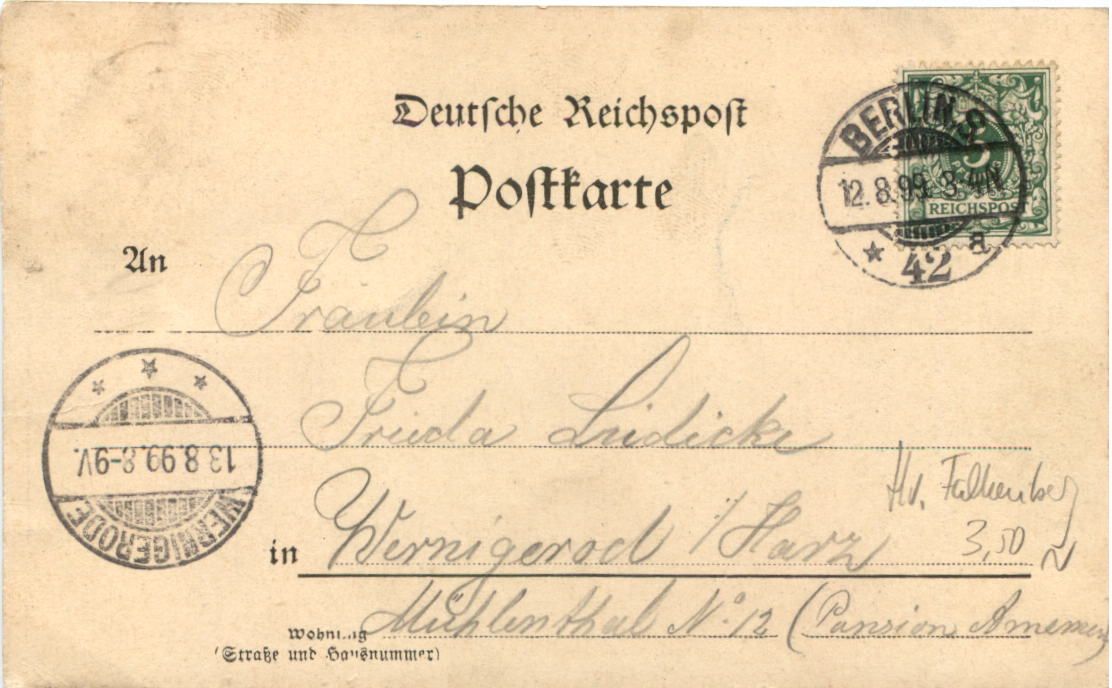 Deutsche Reichspost
Postkarte
BERLIN S.
12.8.99. 3-4N
* 42 a
5
REICHSPOST
An
Fräulein
Frieda Lüdicke
13.8.99.8-9V.
WERNIGERODE
Hv. Falkenberg
3,50
in Wernigerod i/Harz
Wohnung Mühlenthal No 12 (Pansion
(Straße und Hausnummer)